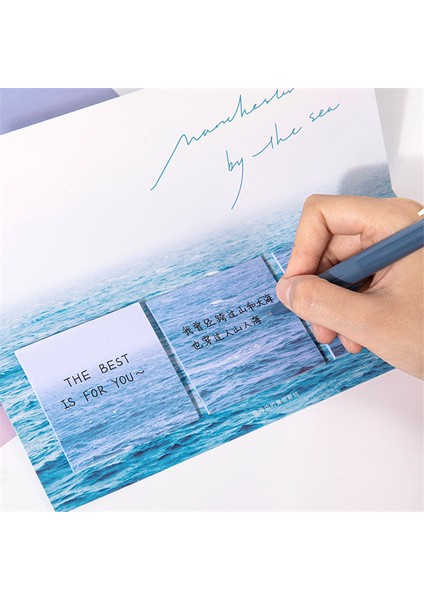 Manchester
by the sea
THE BEST
IS FOR YOU~
我曾经跨过山和大海
也穿过人山人海